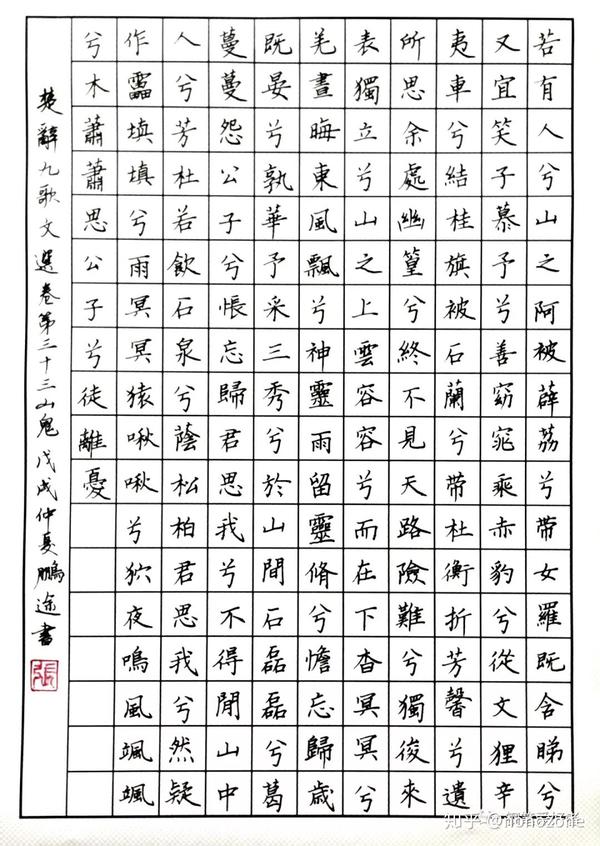 若有人兮山之阿被薜荔兮帶女羅既含睇兮
又宜笑子慕予兮善窈窕乘赤豹兮從文狸辛
夷車兮結桂旗被石蘭兮帶杜衡折芳馨兮遺
所思余處幽篁兮終不見天路險難兮獨後來
表獨立兮山之上雲容容兮而在下杳冥冥兮
羌晝晦東風飄兮神靈雨留靈脩兮憺忘歸歲
既晏兮孰華予采三秀兮於山間石磊磊兮葛
蔓蔓怨公子兮悵忘歸君思我兮不得閒山中
人兮芳杜若飲石泉兮蔭松柏君思我兮然疑
作靁填填兮雨冥冥猿啾啾兮狖夜鳴風颯颯
兮木蕭蕭思公子兮徒離憂
楚辭九歌文選卷第三十三山鬼戊戌仲夏鵬途書
張
知乎 @nonozone